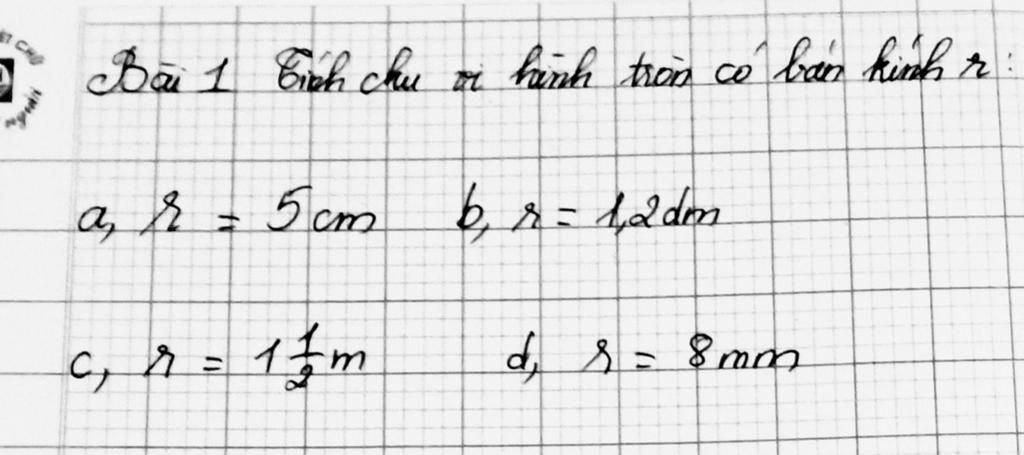 Bài 1 Tính chu vi hình tròn có bán kính r:
a, r = 5cm b, r = 1,2dm
c, r = 1 1/2 m d, r = 8mm